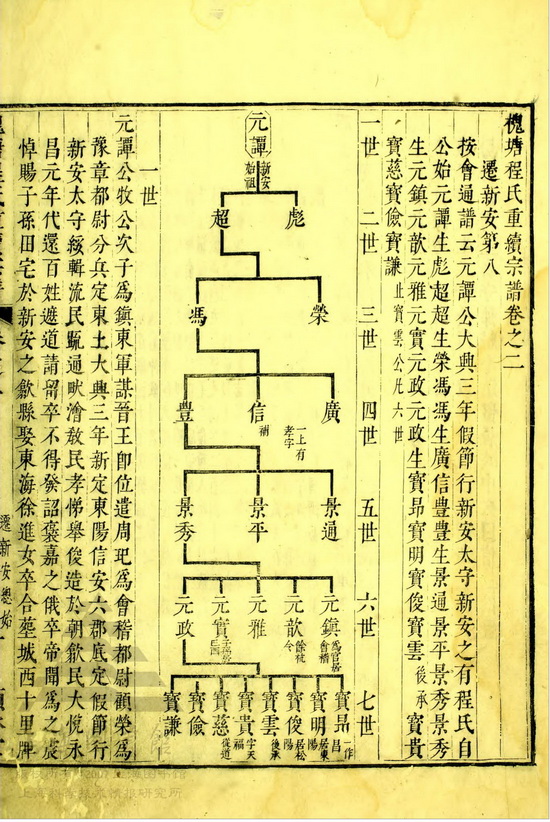 槐塘程氏重續宗譜卷之二
遷新安第八
按會通譜云元譚公大興三年假節行新安太守新安之有程氏自
公始元譚生彪超超生榮馮馮生廣信豐豐生景通景平景秀景秀
生元鎮元歆元雅元實元政元政生寶昂寶明寶俊寶雲後承寶貴
寶慈寶儉寶謙止寶雲公凡六世
一世
元譚
新安始祖
二世
彪
超
三世
榮
馮
四世
廣
一上有孝字
信
補
豐
五世
景通
景平
景秀
六世
元鎮
元歆
元雅
元實
元政
七世
寶昂
一作昌
寶明
寶俊
居松陽
寶雲
後承
寶貴
字天福
寶慈
寶儉
寶謙
一世
元譚公牧公次子爲鎮東軍謀晉王卽位遣周玘爲會稽都尉顧榮爲
豫章都尉分兵定東土大興三年新定東陽信安六郡底定假節行
新安太守綏輯流民甄通畎澮敎民孝悌舉俊造於朝歙民大悅永
昌元年代還百姓遮道請留卒不得發詔褒嘉之俄卒帝聞爲之震
悼賜子孫田宅於新安之歙縣娶東海徐進女卒合塟城西十里牌
遷新安總始